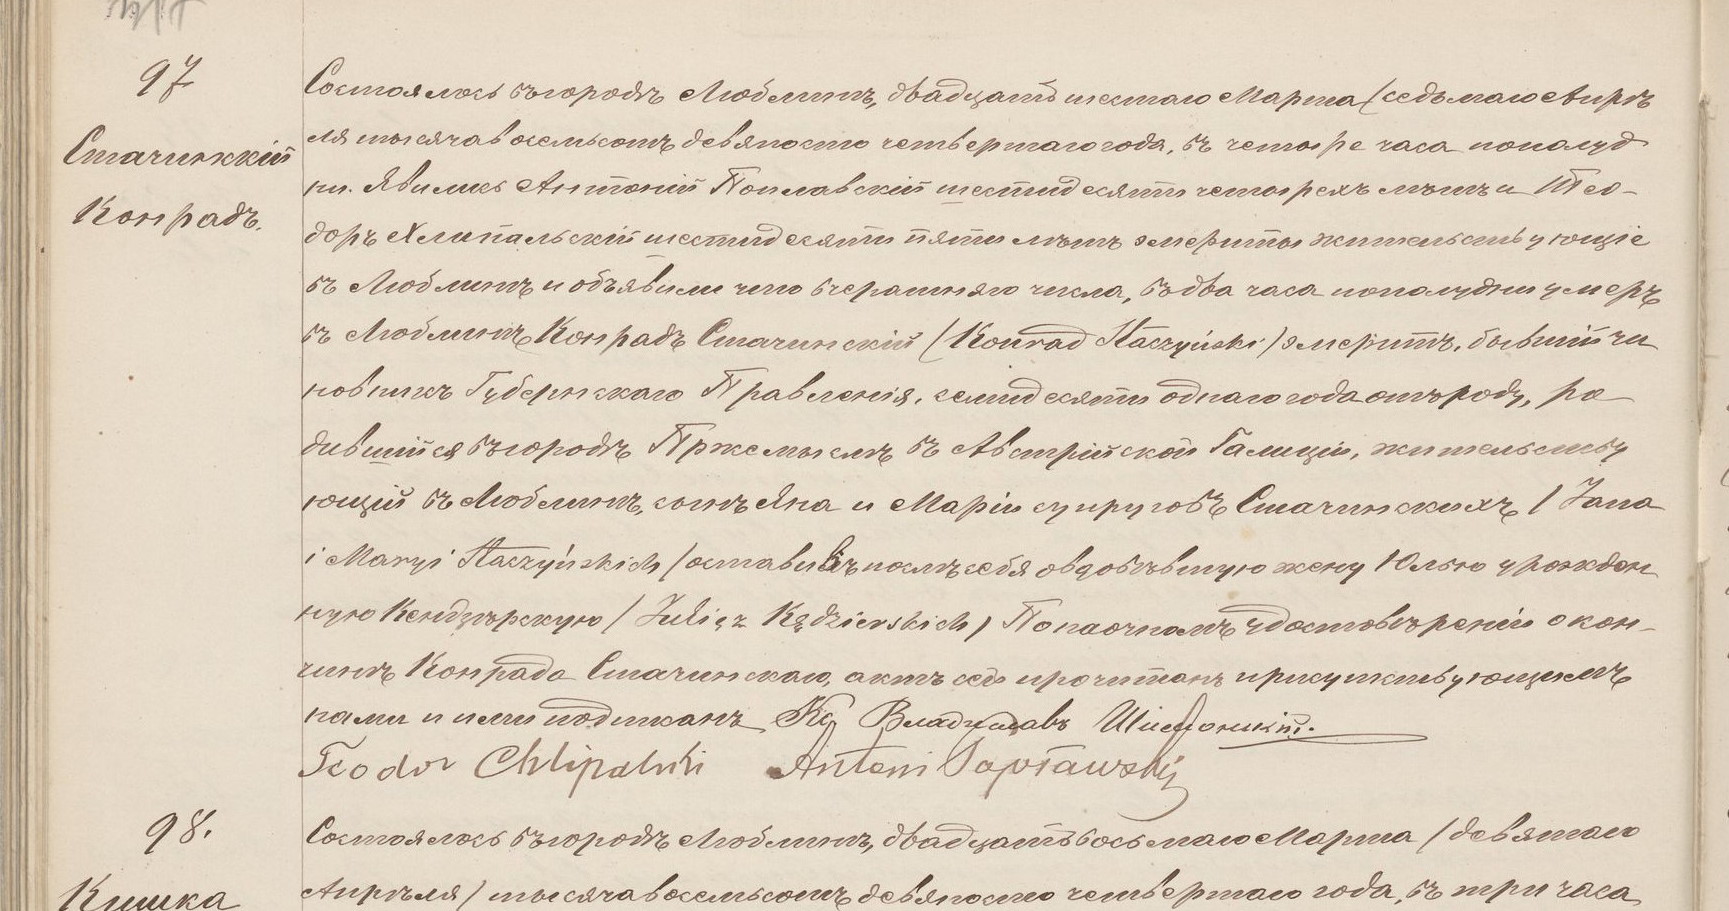 97
Стачинскій
Конрадъ.
Состоялось въ городѣ Люблинѣ, двадцать шестаго Марта (седьмаго Апрѣ
ля тысяча восемьсотъ девяносто четвертаго года, въ четыре часа пополуд
ни. Явились Антоній Поплавскій шестидесяти четырехъ лѣтъ и Тео-
доръ Хлипальскій шестидесяти пяти лѣтъ эмериты жительствующіе
въ Люблинѣ и объявили что вчерашняго числа, въ два часа пополудни умеръ
въ Люблинѣ Конрадъ Стачинскій (Konrad Staczyński) эмеритъ, бывшій чи
новникъ Губернскаго Правленія, семидесяти одного года отъ роду, ро
дившійся въ городѣ Пржемыслѣ въ Австрійской Галиціи, жительству
ющій въ Люблинѣ, сынъ Яна и Маріи супруговъ Стачинскихъ / Jana
i Maryi Staczyńskich / оставивъ послѣ себя овдовѣвшую жену Юлью урожден
ную Кендзѣрскую / Julię z Kędzierskich) По наочномъ удостовѣреніи о кон-
чинѣ Конрада Стачинскаго, актъ сей прочитанъ присутствующимъ
нами и ими подписанъ Кс Владиславъ
Teodor Chlipalski Antoni Popławski
98.
Состоялось въ городѣ Люблинѣ, двадцать восьмаго Марта / девятаго
Кишка
Апрѣля) тысяча восемьсотъ девяносто четвертаго года, въ три часа